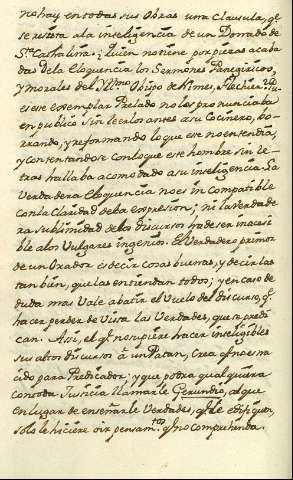 no hay en todas sus Obras una Clausula, qᵉ
se resista a la inteligencia de un Donado de
Sᵗᵃ Cathalina. ¿Quien no tiene por piezas acaba
das de la Eloquencia los Sermones Panegiricos,
y Morales del Yllᵐᵒ Obispo de Nimes, Flechier?
ese exemplar Prelado no los pronunciaba
en publico sin leerlos antes a su Cocinero, bo-
rrando, y reformando lo que este no entendia,
y contentandose con lo que este hombre sin le-
tras hallaba acomodado a su inteligencia. La
verdadera Eloquencia no es incompatible
con la Claridad de la expresion; ni la verdade
ra sublimidad de los discursos ha de ser inacesi
ble a los Vulgares ingenios. El Verdadero primor
de un Orador es decir cosas buenas, y decirlas
tan bien, que las entiendan todos; y en caso de
duda mas vale abatir el Vuelo del discurso, qᵉ
hacer perder de Vista las Verdades, que se predi
can. Assi, el qᵉ no supiere hacer inteligibles
sus altos discursos à un Patan, Crea qᵉ no es na
cido para Predicador; y que podra qualquiera
con toda Justicia llamarle Gerundio, al que
en lugar de enseñarle Verdades, qᵉ le edifiquen,
solo le hiciere oir pensamᵗᵒˢ qᵉ no comprehenda.